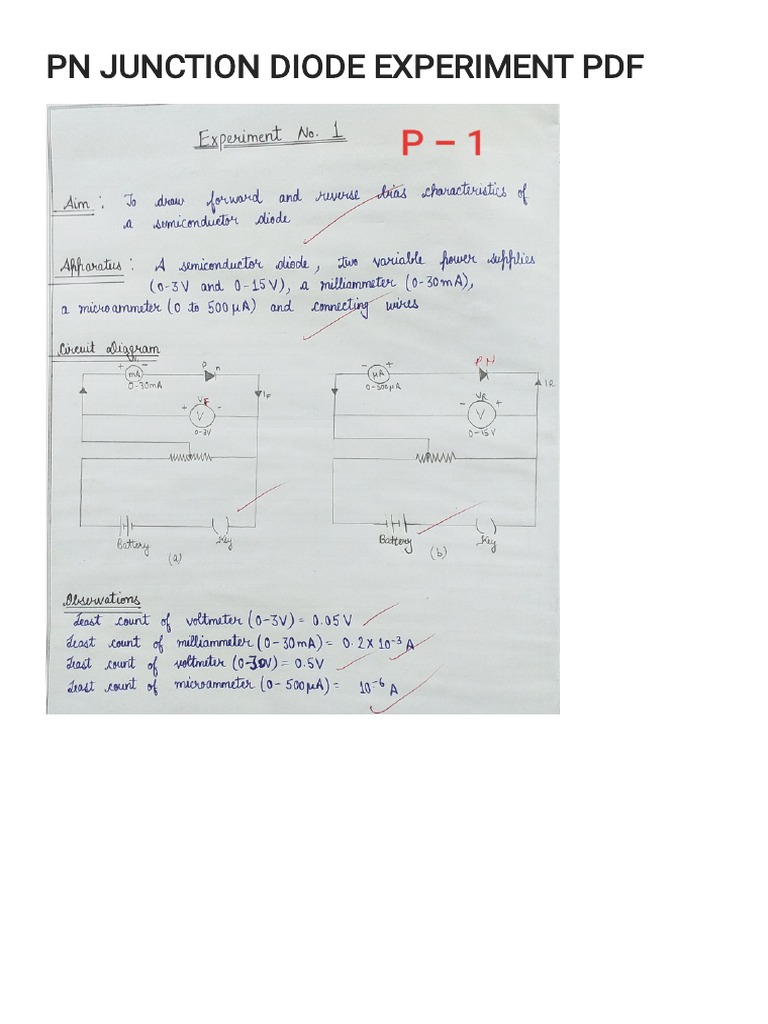 PN JUNCTION DIODE EXPERIMENT PDF
Experiment No. 1
P – 1
Aim : To draw forward and reverse bias characteristics of
a semiconductor diode
Apparatus : A semiconductor diode, two variable power supplies
(0-3V and 0-15V), a milliammeter (0-30mA),
a microammeter (0 to 500μA) and connecting wires
Circuit Diagram
+ -
mA
0-30mA
P n
IF
VF
+ V -
0-3V
Battery
Key
(a)
- +
μA
0-500μA
P N
IR
VR
- V +
0-15V
Battery
Key
(b)
Observations
Least count of voltmeter (0-3V) = 0.05V
Least count of milliammeter (0-30mA) = 0.2 x 10-3 A
Least count of voltmeter (0-30V) = 0.5V
Least count of microammeter (0-500μA) = 10-6 A